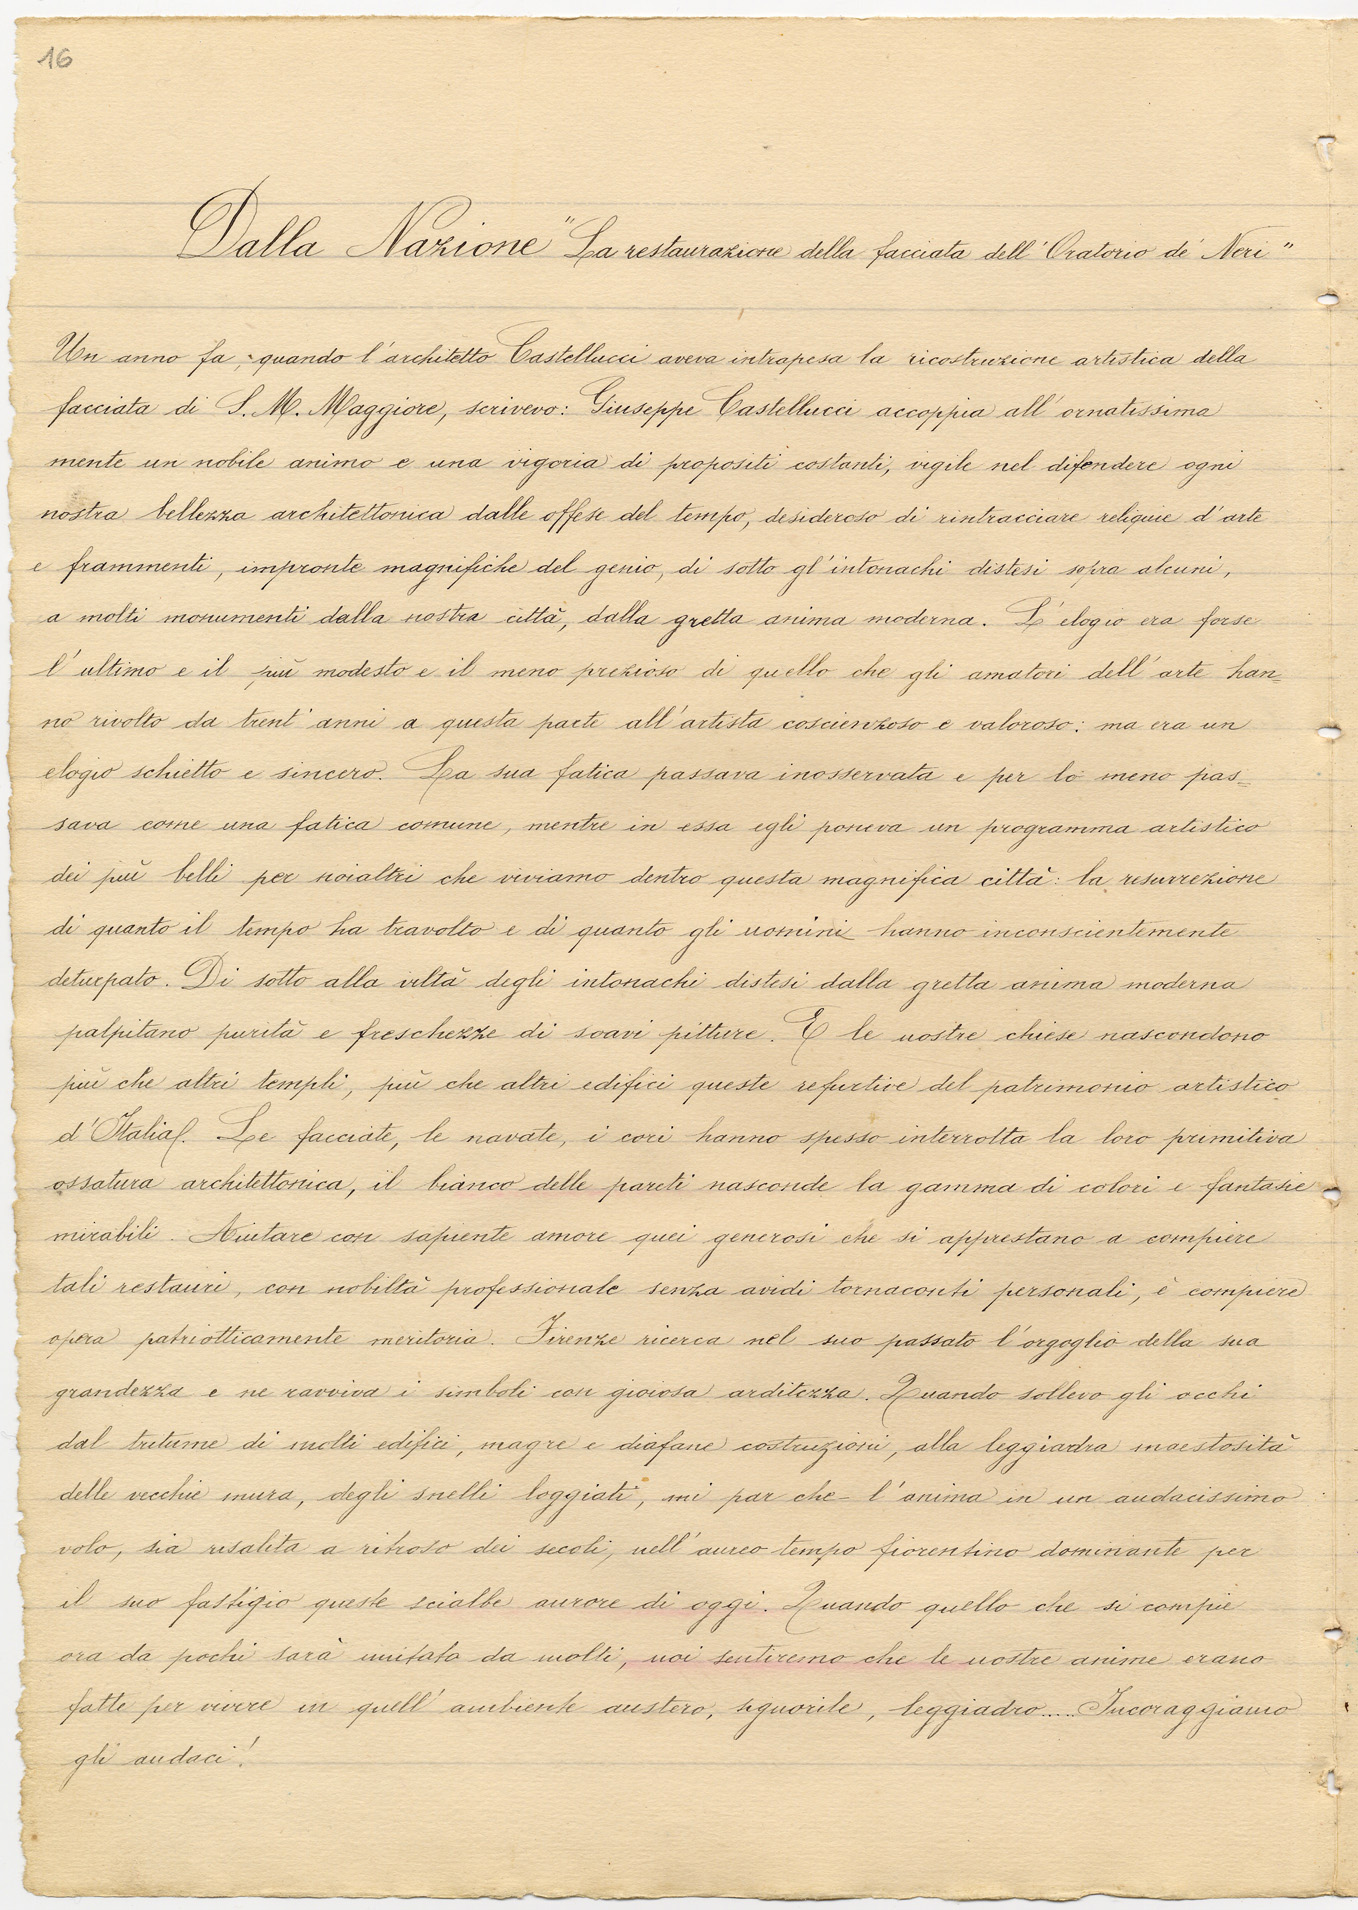 16
Dalla Nazione "La restaurazione della facciata dell'Oratorio de' Neri"
Un anno fa, quando l'architetto Castellucci aveva intrapesa la ricostruzione artistica della
facciata di S. M. Maggiore, scrivevo: Giuseppe Castellucci accoppia all'ornatissima
mente un nobile animo e una vigoria di propositi costanti, vigile nel difendere ogni
nostra bellezza architettonica dalle offese del tempo, desideroso di rintracciare reliquie d'arte
e frammenti, impronte magnifiche del genio, di sotto gl'intonachi distesi sopra alcuni,
a molti monumenti dalla nostra città, dalla gretta anima moderna. L'elogio era forse
l'ultimo e il più modesto e il meno prezioso di quello che gli amatori dell'arte han=
no rivolto da trent'anni a questa parte all'artista coscienzoso e valoroso: ma era un
elogio schietto e sincero. La sua fatica passava inosservata e per lo meno pas=
sava come una fatica comune, mentre in essa egli poneva un programma artistico
dei più belli per noialtri che viviamo dentro questa magnifica città: la resurrezione
di quanto il tempo ha travolto e di quanto gli uomini hanno inconscientemente
deturpato. Di sotto alla viltà degli intonachi distesi dalla gretta anima moderna
palpitano purità e freschezze di soavi pitture. E le nostre chiese nascondono
più che altri templi, più che altri edifici queste refurtive del patrimonio artistico
d'Italia. Le facciate, le navate, i cori hanno spesso interrotta la loro primitiva
ossatura architettonica, il bianco delle pareti nasconde la gamma di colori e fantasie
mirabili. Aiutare con sapiente amore quei generosi che si apprestano a compiere
tali restauri, con nobiltà professionale senza avidi tornaconti personali, è compiere
opera patriotticamente meritoria. Firenze ricerca nel suo passato l'orgoglio della sua
grandezza e ne ravviva i simboli con gioiosa arditezza. Quando sollevo gli occhi
dal tritume di molti edifici, magre e diafane costruzioni, alla leggiadra maestosità
delle vecchie mura, degli snelli loggiati, mi par che l'anima in un audacissimo
volo, sia risalita a ritroso dei secoli, nell'aureo tempo fiorentino dominante per
il suo fastigio queste scialbe aurore di oggi. Quando quello che si compie
ora da pochi sarà imitato da molti, noi sentiremo che le nostre anime erano
fatte per vivere in quell'ambiente austero, signorile, leggiadro..... Incoraggiamo
gli audaci!